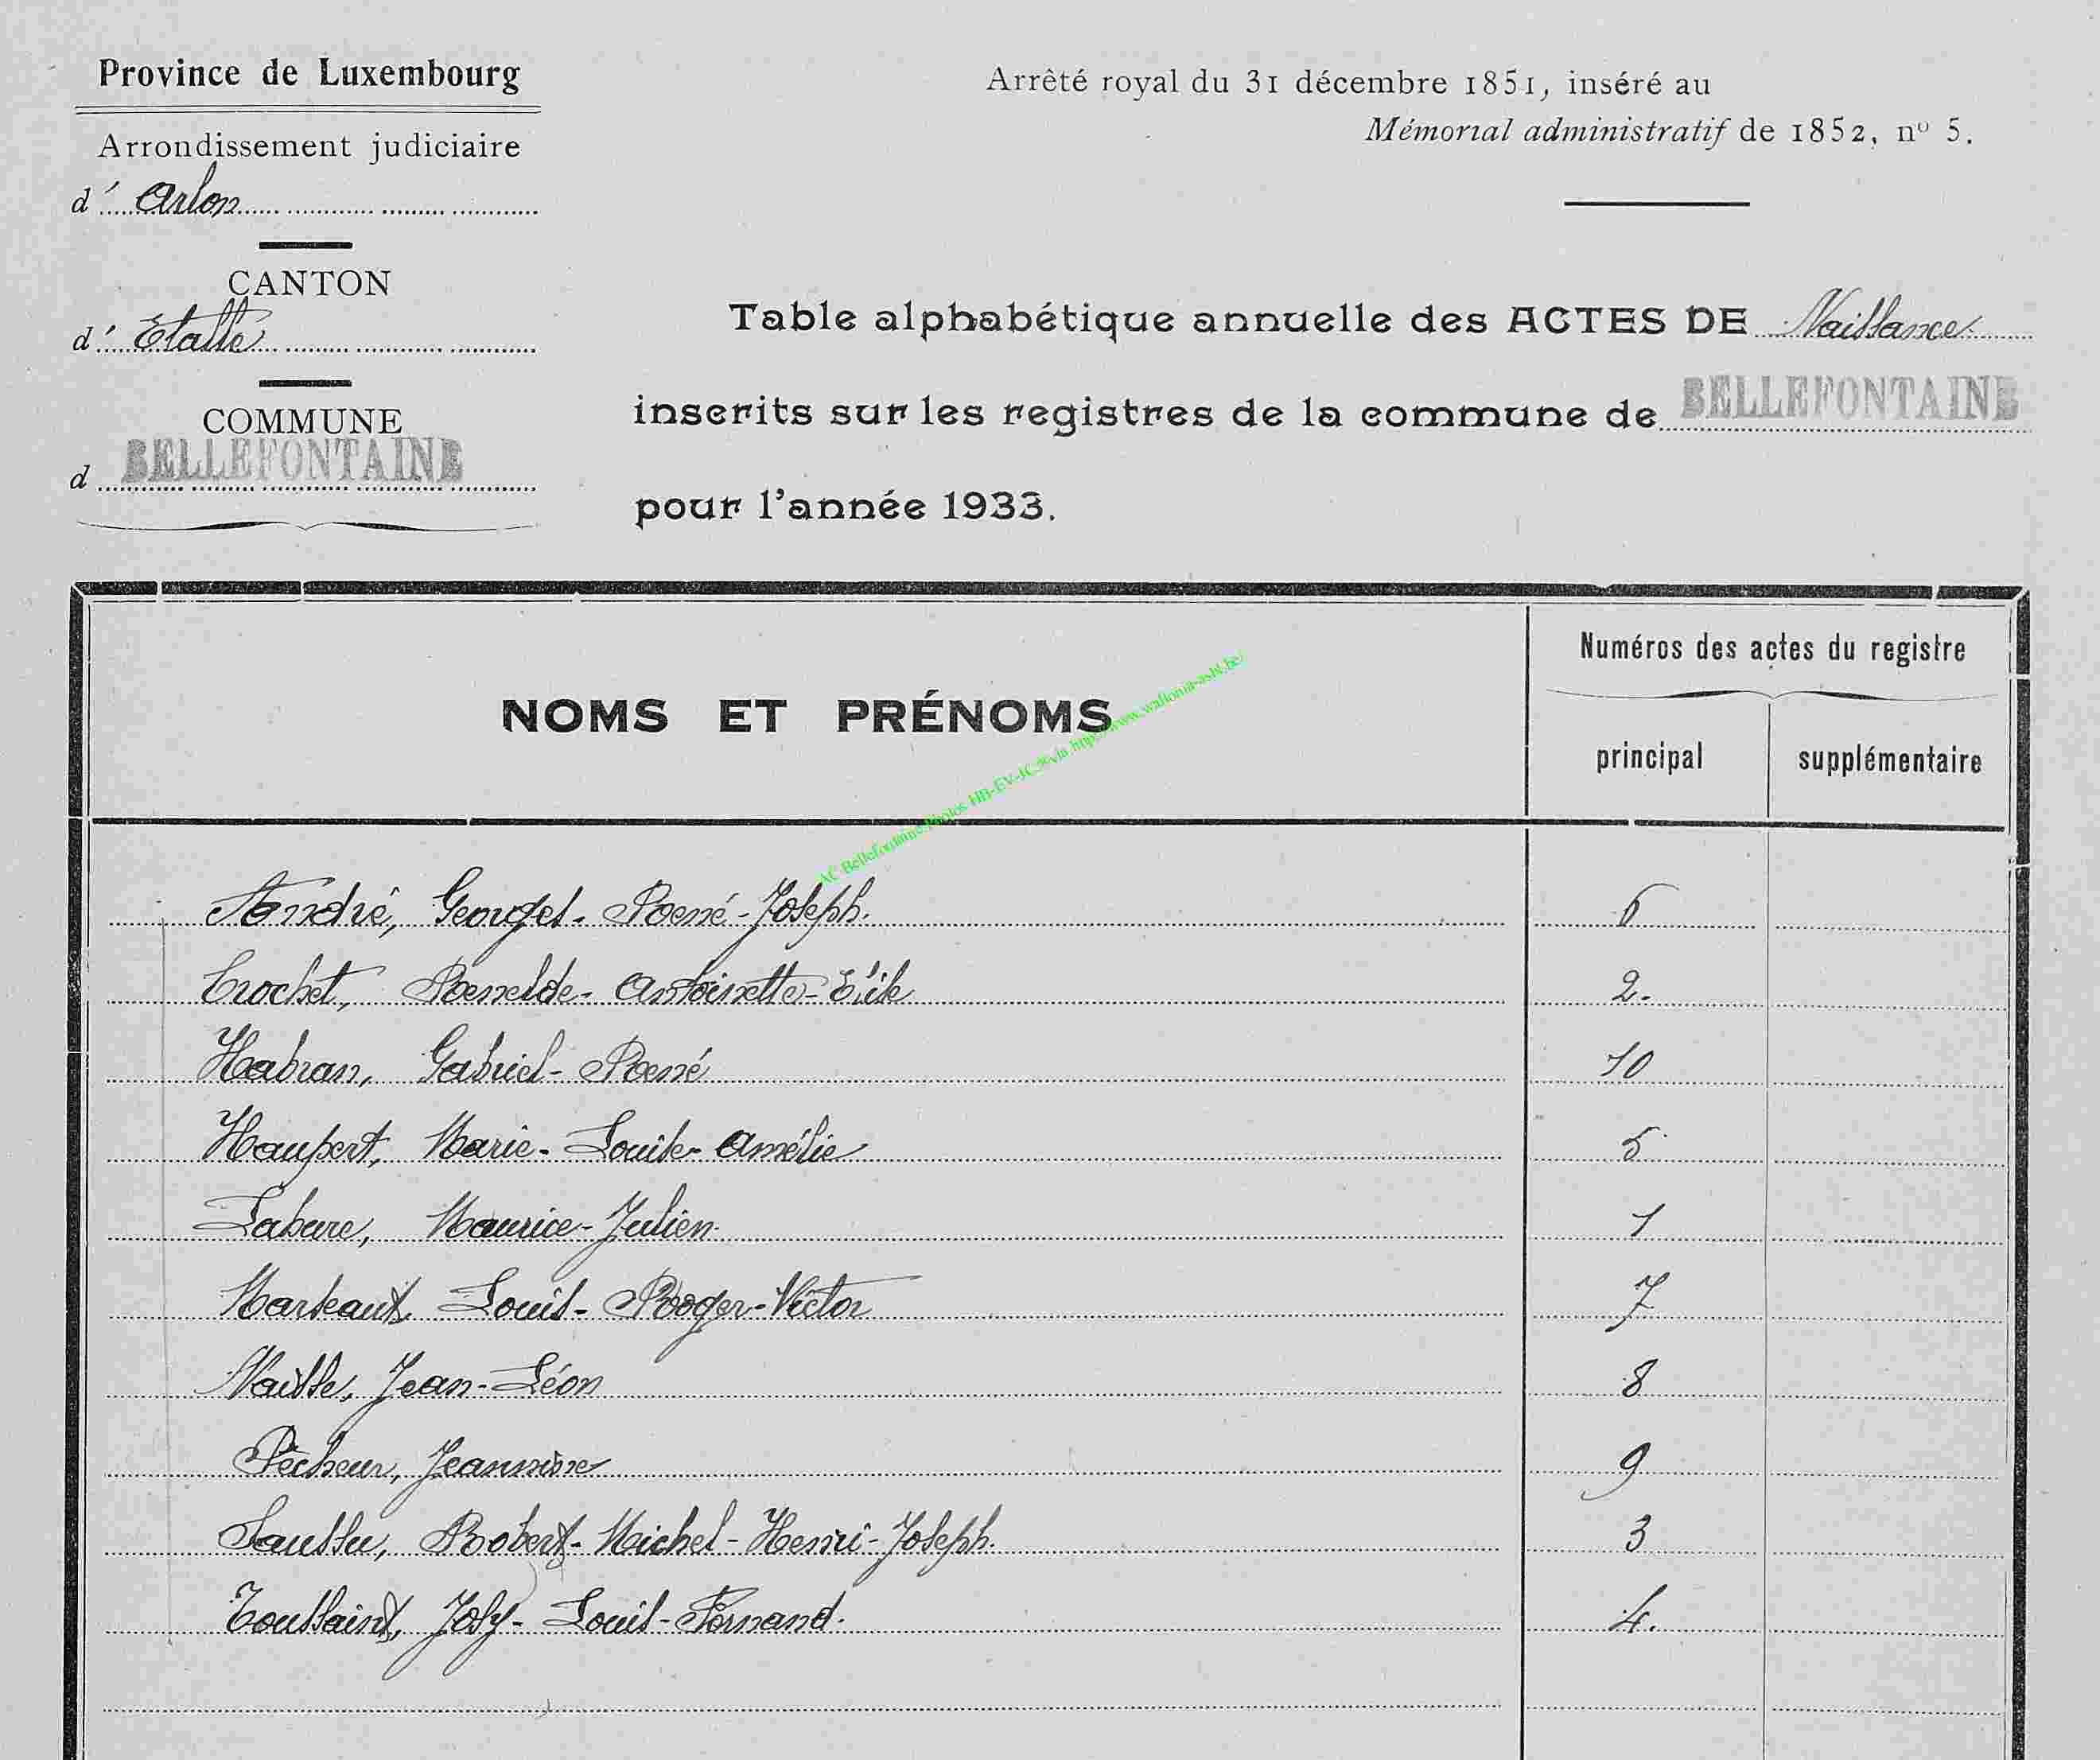 Province de Luxembourg
Arrondissement judiciaire
d' Arlon
CANTON
d' Etalle
COMMUNE
d BELLEFONTAINE
Arrêté royal du 31 décembre 1851, inséré au
Mémorial administratif de 1852, nº 5.
Table alphabétique annuelle des ACTES DE Naissance
inscrits sur les registres de la commune de BELLEFONTAINE
pour l'année 1933.
NOMS ET PRÉNOMS
Numéros des actes du registre
principal supplémentaire
AC Bellefontaine Photos HB-EV-JC via http://www.wallonia-asbl.be/
André, Georges-René-Joseph. 6
Crochet, Renelde-Antoinette- 2.
Habran, Gabriel-René 10
Haupert, Marie-Louise-Amélie 5
Labure, Maurice-Julien 1
Marteaux, Louis-Roger-Victor 7
Naisse, Jean-Léon 8
Pêcheur, Jeannine 9
Saussu, Robert-Michel-Henri-Joseph. 3
Toussaint, Josy-Louis-Fernand. 4.